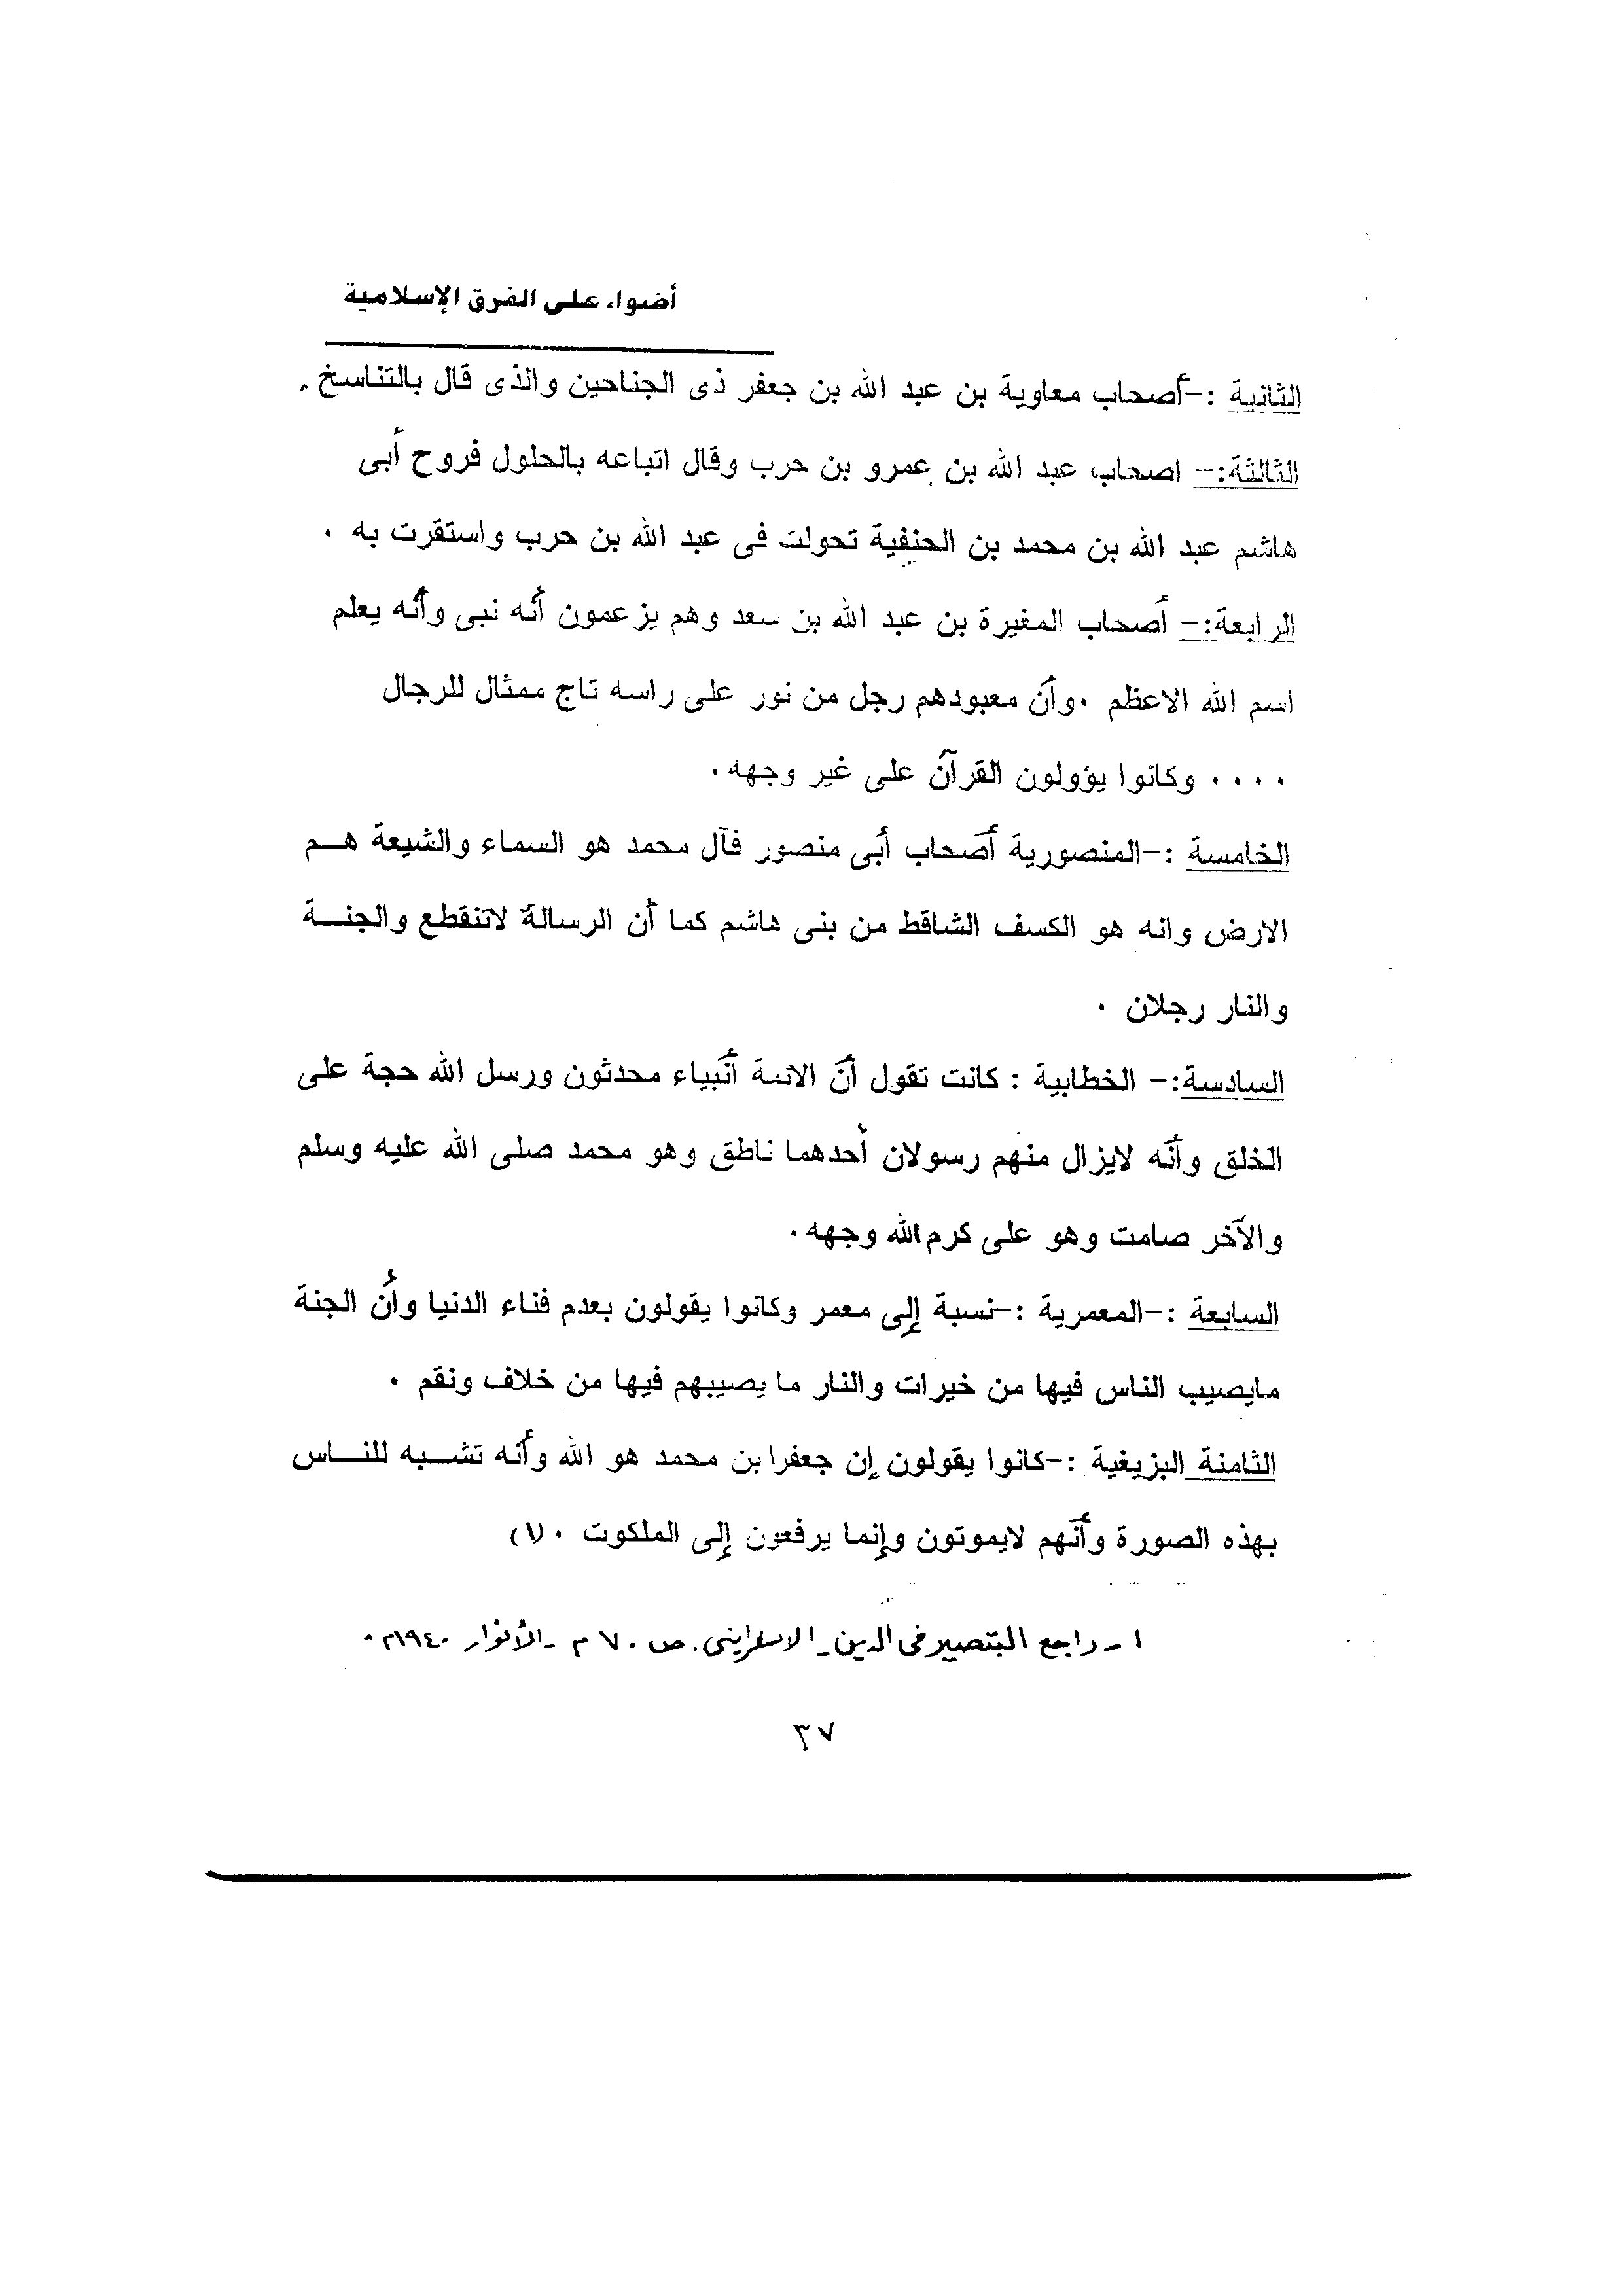 أضواء على الفرق الإسلامية
الثانية :-أصحاب معاوية بن عبد الله بن جعفر ذى الجناحين والذى قال بالتناسخ .
الثالثة:- اصحاب عبد الله بن عمرو بن حرب وقال اتباعه بالحلول فروح أبى
هاشم عبد الله بن محمد بن الحنفية تحولت فى عبد الله بن حرب واستقرت به .
الرابعة:- أصحاب المغيرة بن عبد الله بن سعد وهم يزعمون أنه نبى وأنه يعلم
اسم الله الاعظم .وأن معبودهم رجل من نور على راسه تاج ممثال للرجال
.... وكانوا يؤولون القرآن على غير وجهه.
الخامسة :-المنصورية أصحاب أبى منصور فآل محمد هو السماء والشيعة هم
الارض وانه هو الكسف الشاقط من بنى هاشم كما أن الرسالة لاتنقطع والجنة
والنار رجلان .
السادسة:- الخطابية : كانت تقول أن الائمة أنبياء محدثون ورسل الله حجة على
الخلق وأنه لايزال منهم رسولان أحدهما ناطق وهو محمد صلى الله عليه وسلم
والآخر صامت وهو على كرم الله وجهه.
السابعة :-المعمرية :-نسبة إلى معمر وكانوا يقولون بعدم فناء الدنيا وأن الجنة
مايصيب الناس فيها من خيرات والنار ما يصيبهم فيها من خلاف ونقم .
الثامنة البزيغية :-كانوا يقولون إن جعفرا بن محمد هو الله وأنه تشبه للناس
بهذه الصورة وأنهم لايموتون وإنما يرفعون إلى الملكوت .(١)
١ - راجع التبصير فى الدين - الاسفراينى. ص ٧٠ م - الأنوار ١٩٤٠م.
٣٧